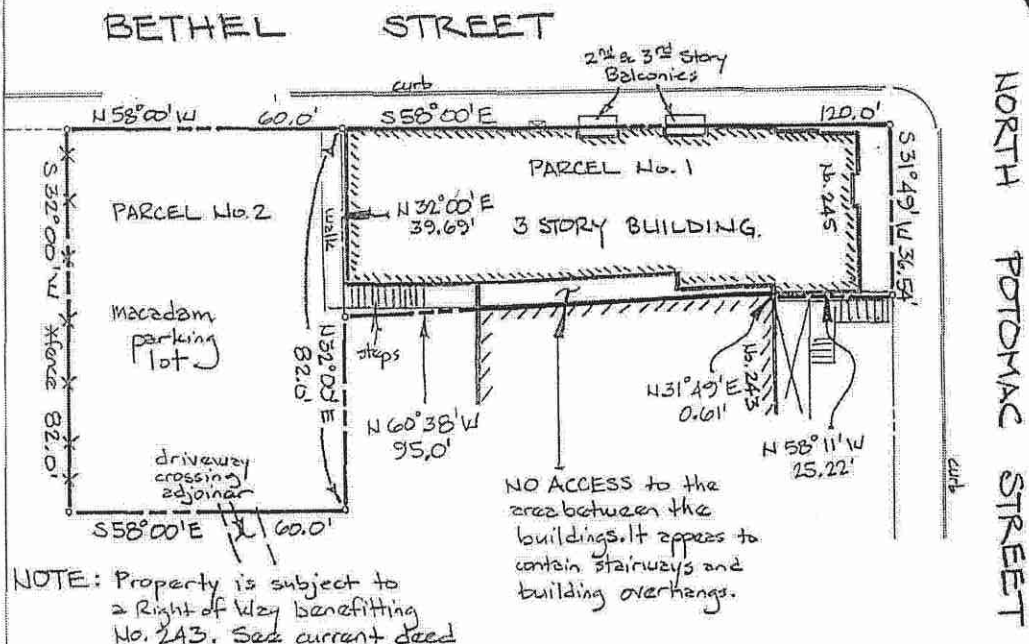 BETHEL STREET
2nd & 3rd Story
Balconies
curb
N 58°00' W 60.0'
S 58°00' E 120.0'
S 31°49' W 36.54'
NORTH POTOMAC STREET
PARCEL No. 1
3 STORY BUILDING.
No. 245
N 32°00' E
39.69'
walk
PARCEL No. 2
S 32°00' W
fence 82.0'
macadam
parking
lot
N 32°00' E
82.0'
steps
N 60°38' W
95.0'
N 31°49' E
0.61'
No. 243
N 58°11' W
25.22'
curb
driveway
crossing
adjoiner
S 58°00' E 60.0'
NO ACCESS to the
area between the
buildings. It appears to
contain stairways and
building overhangs.
NOTE: Property is subject to
a Right of Way benefitting
No. 243. See current deed